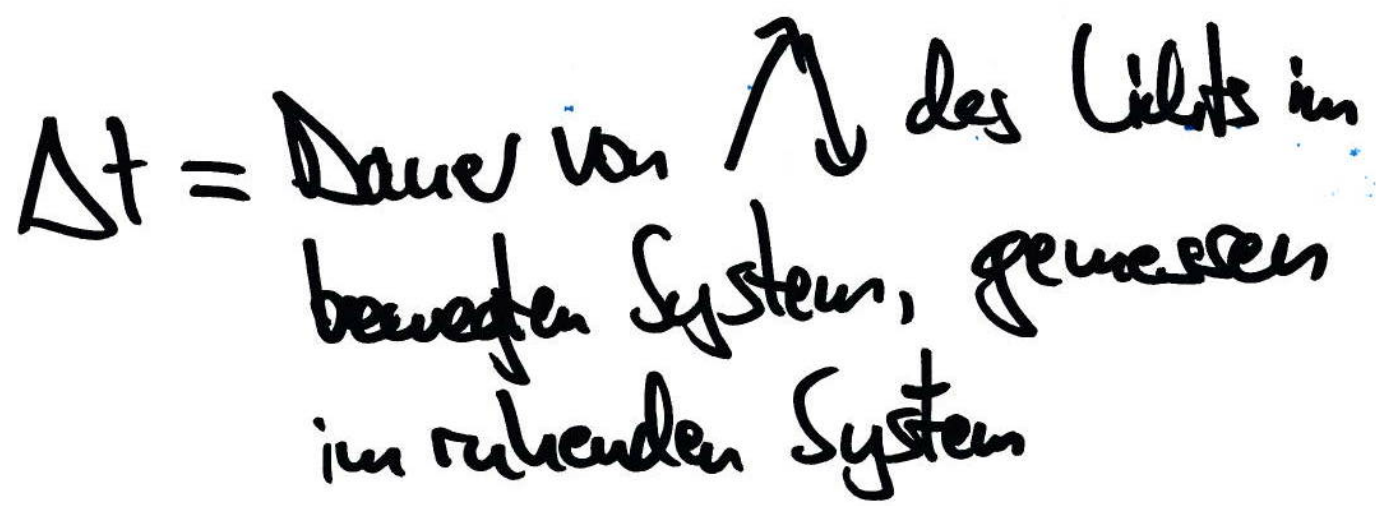 Δt = Dauer von ↗↘ des Lichts im
bewegten System, gemessen
im ruhenden System